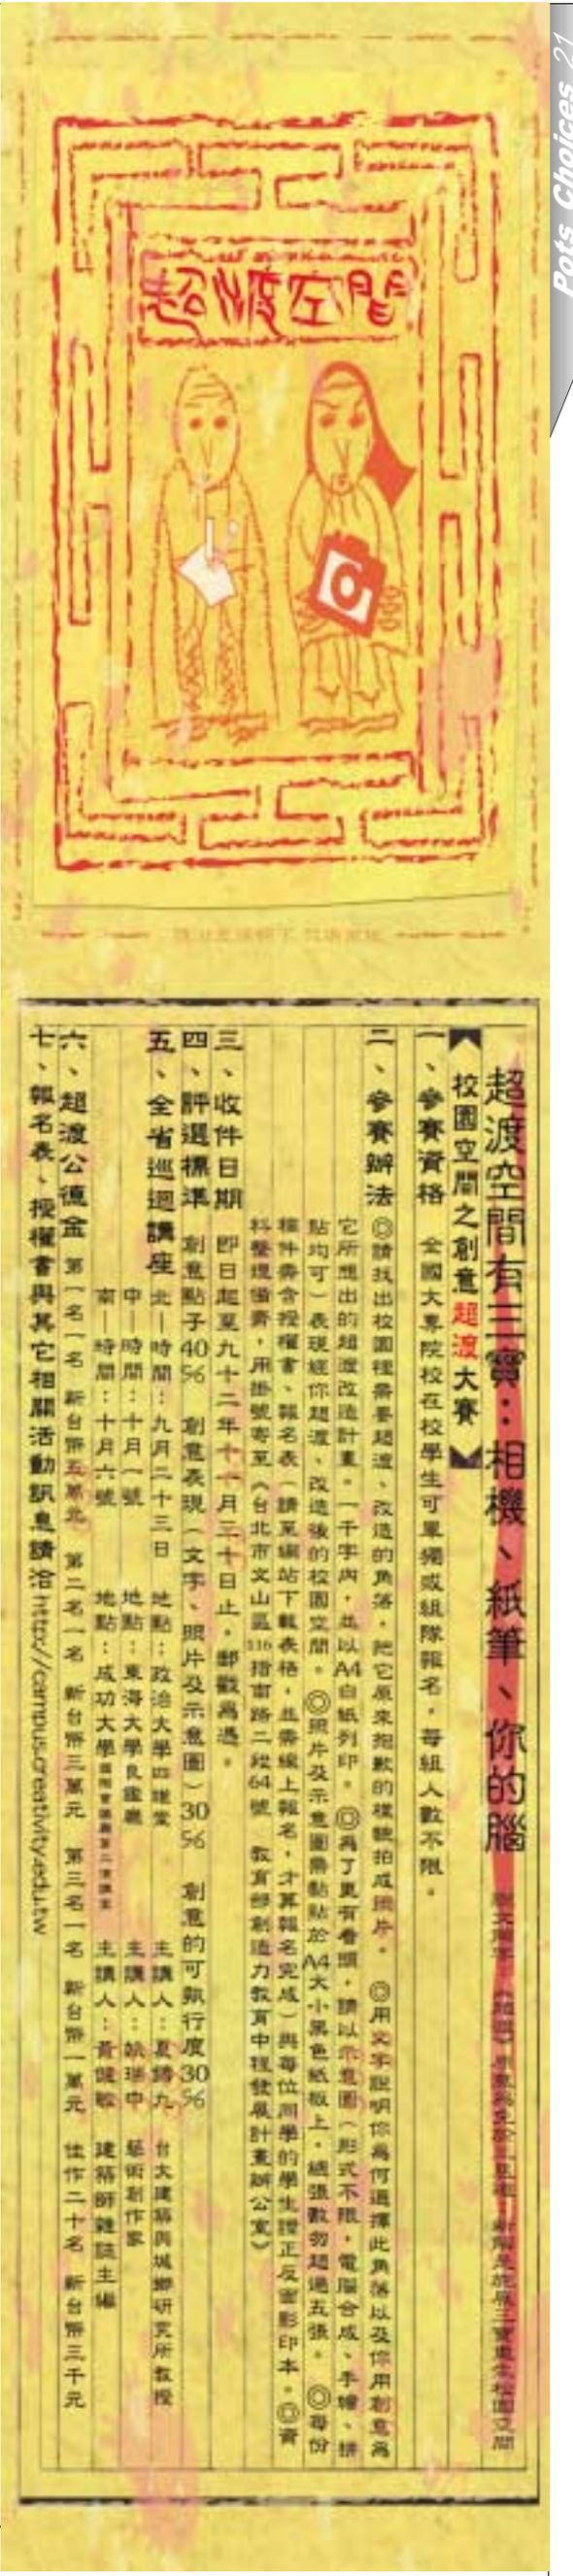 Pots Choices 21
超渡空間
超渡空間有三寶：相機、紙筆、你的腦
校園空間之創意超渡大賽
一、參賽資格 全國大專院校在校學生可單獨或組隊報名，每組人數不限。
二、參賽辦法 ◎請找出校園裡需要超渡、改造的角落，把它原來抱歉的樣貌拍成照片。 ◎用文字說明你為何選擇此角落以及你用創意為
它所想出的超渡改造計畫。一千字內，並以A4白紙列印。 ◎為了更有看頭，請以示意圖（形式不限，電腦合成、手繪、拼
貼均可）表現經你超渡、改造後的校園空間。 ◎照片及示意圖需黏貼於A4大小黑色紙板上，總張數勿超過五張。 ◎每份
稿件需含授權書、報名表（請至網站下載表格，並需線上報名，才算報名完成）與每位同學的學生證正反面影印本。◎資
料整理備齊，用掛號寄至《台北市文山區116指南路二段64號 教育部創造力教育中程發展計畫辦公室》
三、收件日期 即日起至九十二年十一月二十日止，郵戳為憑。
四、評選標準 創意點子40% 創意表現（文字、照片及示意圖）30% 創意的可執行度30%
五、全省巡迴講座 北—時間：九月二十三日 地點：政治大學四維堂 主講人：夏鑄九 台大建築與城鄉研究所教授
中—時間：十月一號 地點：東海大學良鑑廳 主講人：姚瑞中 藝術創作家
南—時間：十月六號 地點：成功大學國際會議廳第二演講室 主講人：黃健敏 建築師雜誌主編
六、超渡公德金 第一名一名 新台幣五萬元 第二名一名 新台幣三萬元 第三名一名 新台幣一萬元 佳作二十名 新台幣三千元
七、報名表、授權書與其它相關活動訊息請洽http://campus.creativity.edu.tw